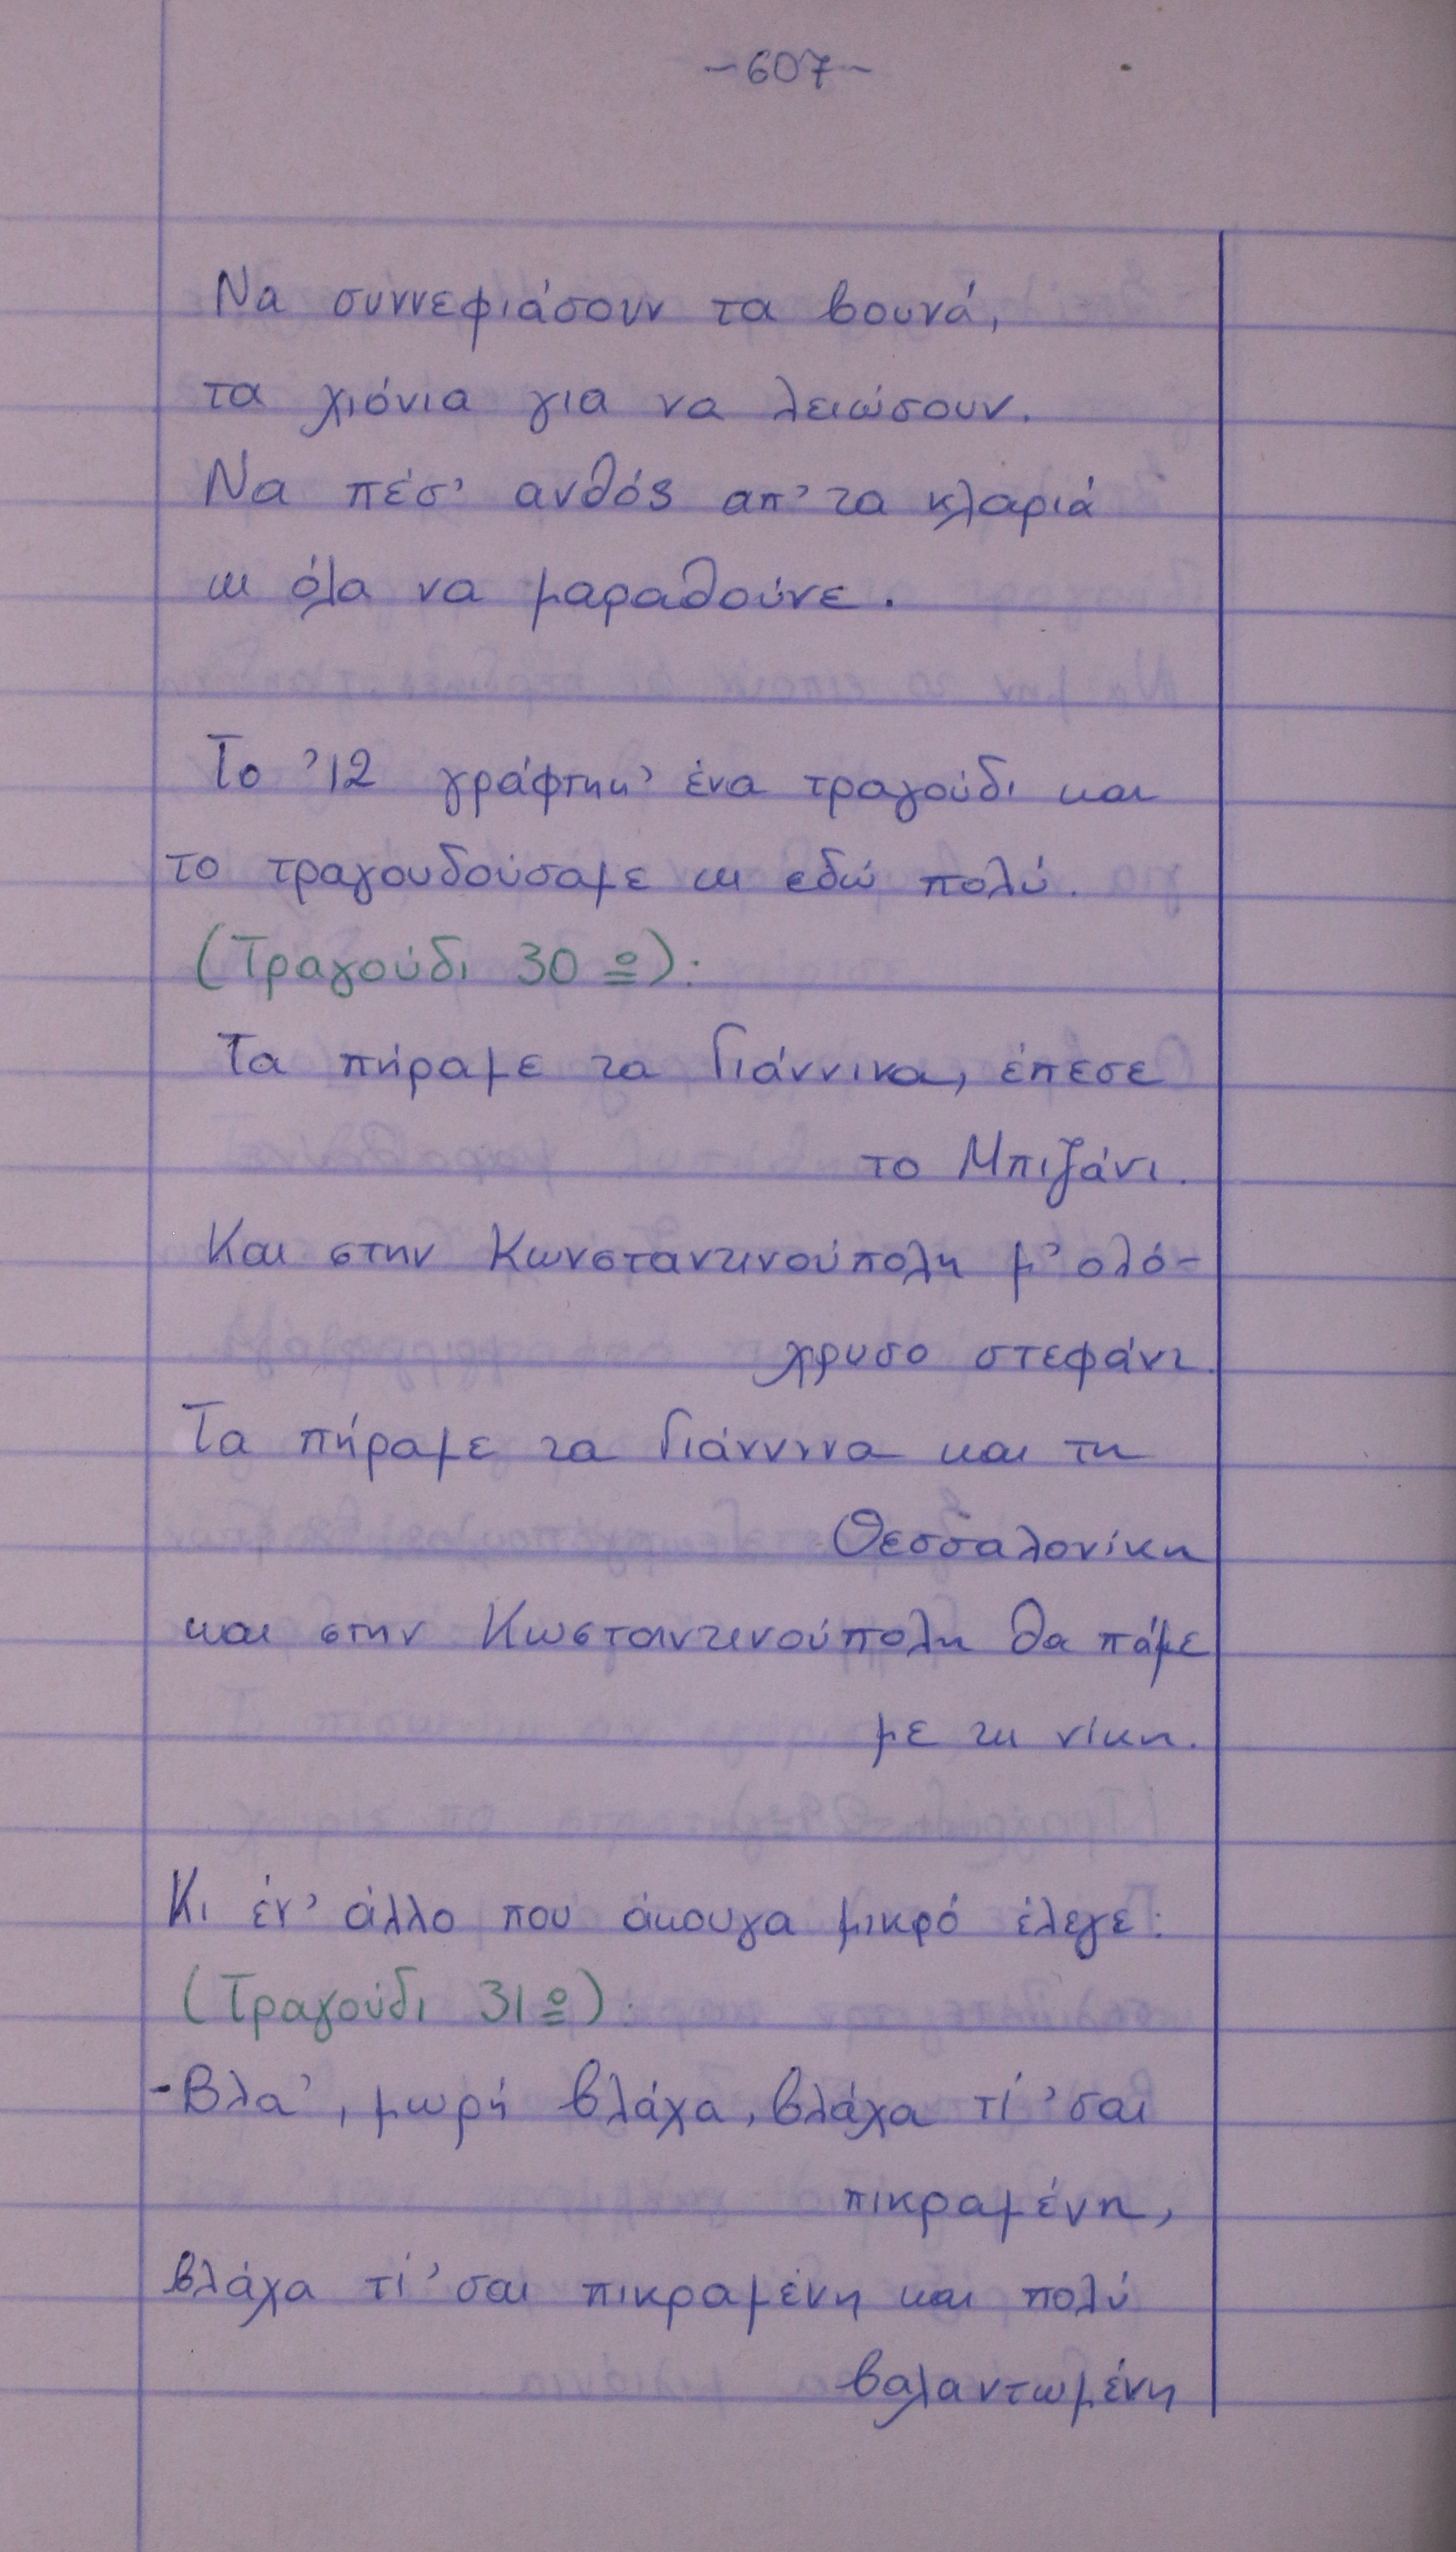 -607-
Να συννεφιάσουν τα βουνά,
τα χιόνια για να λειώσουν.
Να πέσ' ανθός απ' τα κλαριά
κι όλα να μαραθούνε.
Το '12 γράφτηκ' ένα τραγούδι και
το τραγουδούσαμε κι εδώ πολύ.
(Τραγούδι 30º):
Τα πήραμε τα Γιάννικα, έπεσε
το Μπιζάνι.
Και στην Κωνσταντινούπολη μ' ολό-
χρυσο στεφάνι.
Τα πήραμε τα Γιάννινα και τη
Θεσσαλονίκη
και στην Κωσταντινούπολη θα πάμε
με τη νίκη.
Κι έν' άλλο που άκουγα μικρό έλεγε:
(Τραγούδι 31º):
-Βλα', μωρή βλάχα, βλάχα τί 'σαι
πικραμένη,
βλάχα τί 'σαι πικραμένη και πολύ
βαλαντωμένη